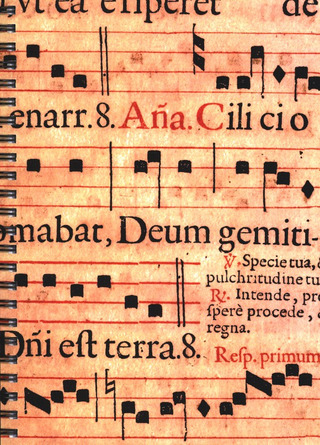 Lvt ea eriperet de
enarr.8. Aña. Cilicio
omabat, Deum gemiti-
℣. Specie tua, &
pulchritudine tu
℟. Intende, pro
sperè procede, &
regna.
Dñi est terra.8. Resp. primum